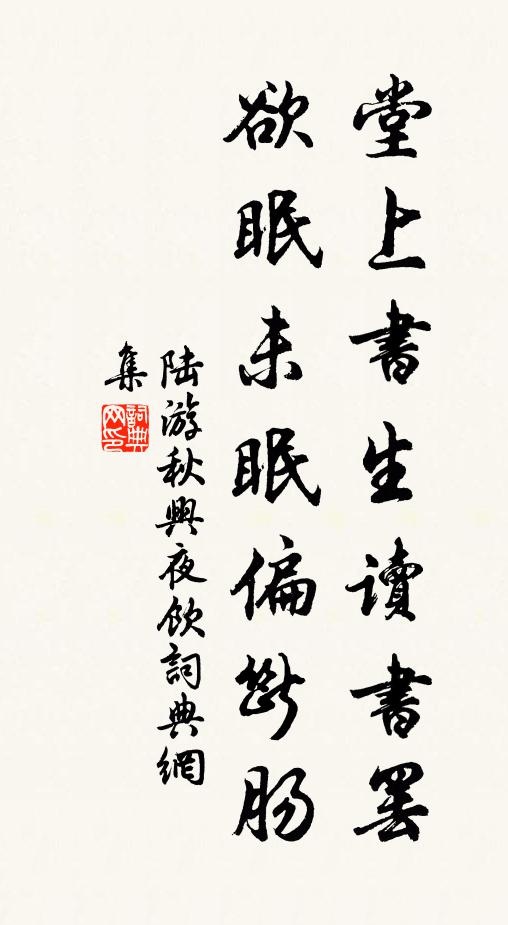 堂上書生讀書罷
欲眠未眠偏斷肠
陆游秋興夜飲詞典網
集
詞典网印